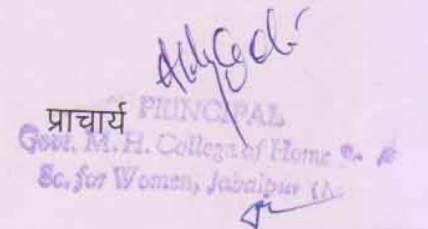 प्राचार्य PRINCIPAL
Govt. M. H. College of Home
Sc. for Women, Jabalpur